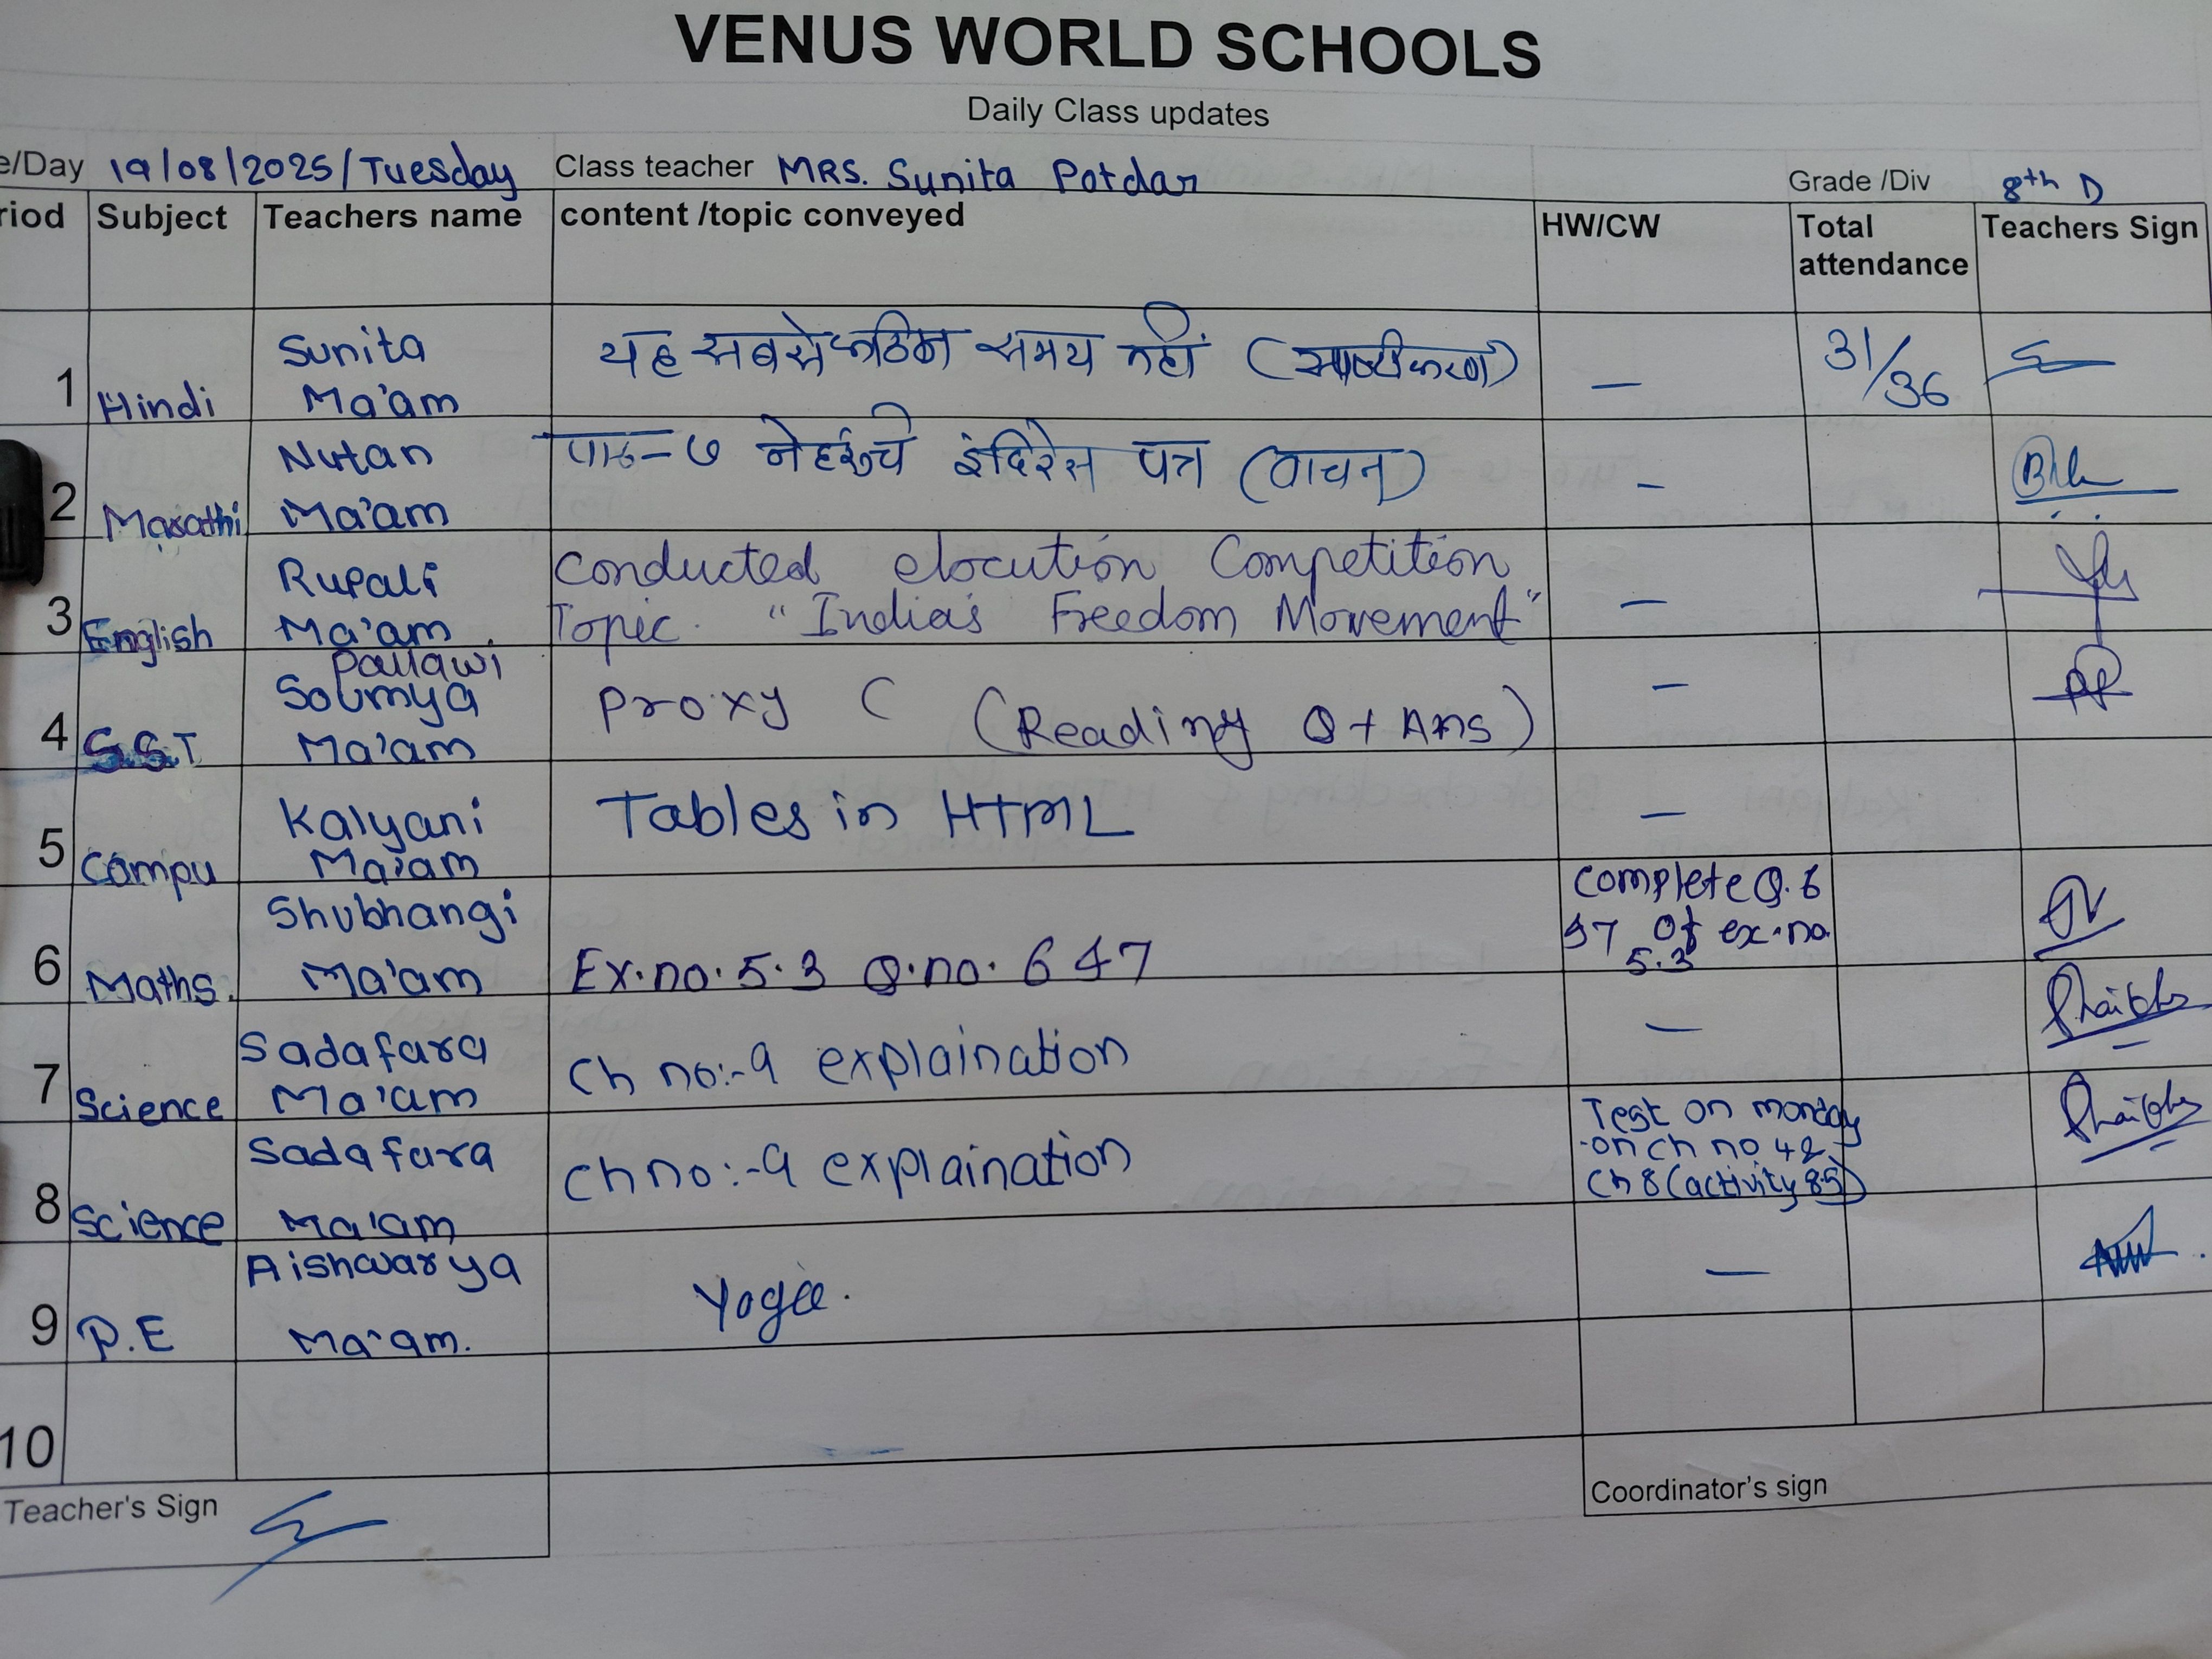 VENUS WORLD SCHOOLS
Daily Class updates
e/Day 19/08/2025/Tuesday Class teacher MRS. Sunita Potdar Grade /Div 8th D
riod Subject Teachers name content /topic conveyed HW/CW Total attendance Teachers Sign
1 Hindi Sunita Ma'am यह सबसे कठिन समय नहीं (स्पष्टीकरण) — 31/36
2 Marathi Nutan Ma'am पाठ-७ नेहरूंचे इंदिरेस पत्र (वाचन) —
3 English Rupali Ma'am. Conducted elocution Competition
Topic. "India's Freedom Movement" —
4 S.S.T Pallawi Soumya Ma'am Proxy ( (Reading Q + Ans) —
5 Compu Kalyani Ma'am Tables in HTML —
6 Maths. Shubhangi Ma'am Ex.no. 5.3 Q.no. 6 & 7 Complete Q. 6
&7 of ex.no
5.3
7 Science Sadafara Ma'am Ch no:-9 explaination —
8 Science Sadafara Ma'am Ch no:-9 explaination Test on monday
on ch no 4 &
Ch 8 (activity 8.5)
9 P.E Aishwarya Ma'am. Yoga. —
10
Teacher's Sign
Coordinator's sign